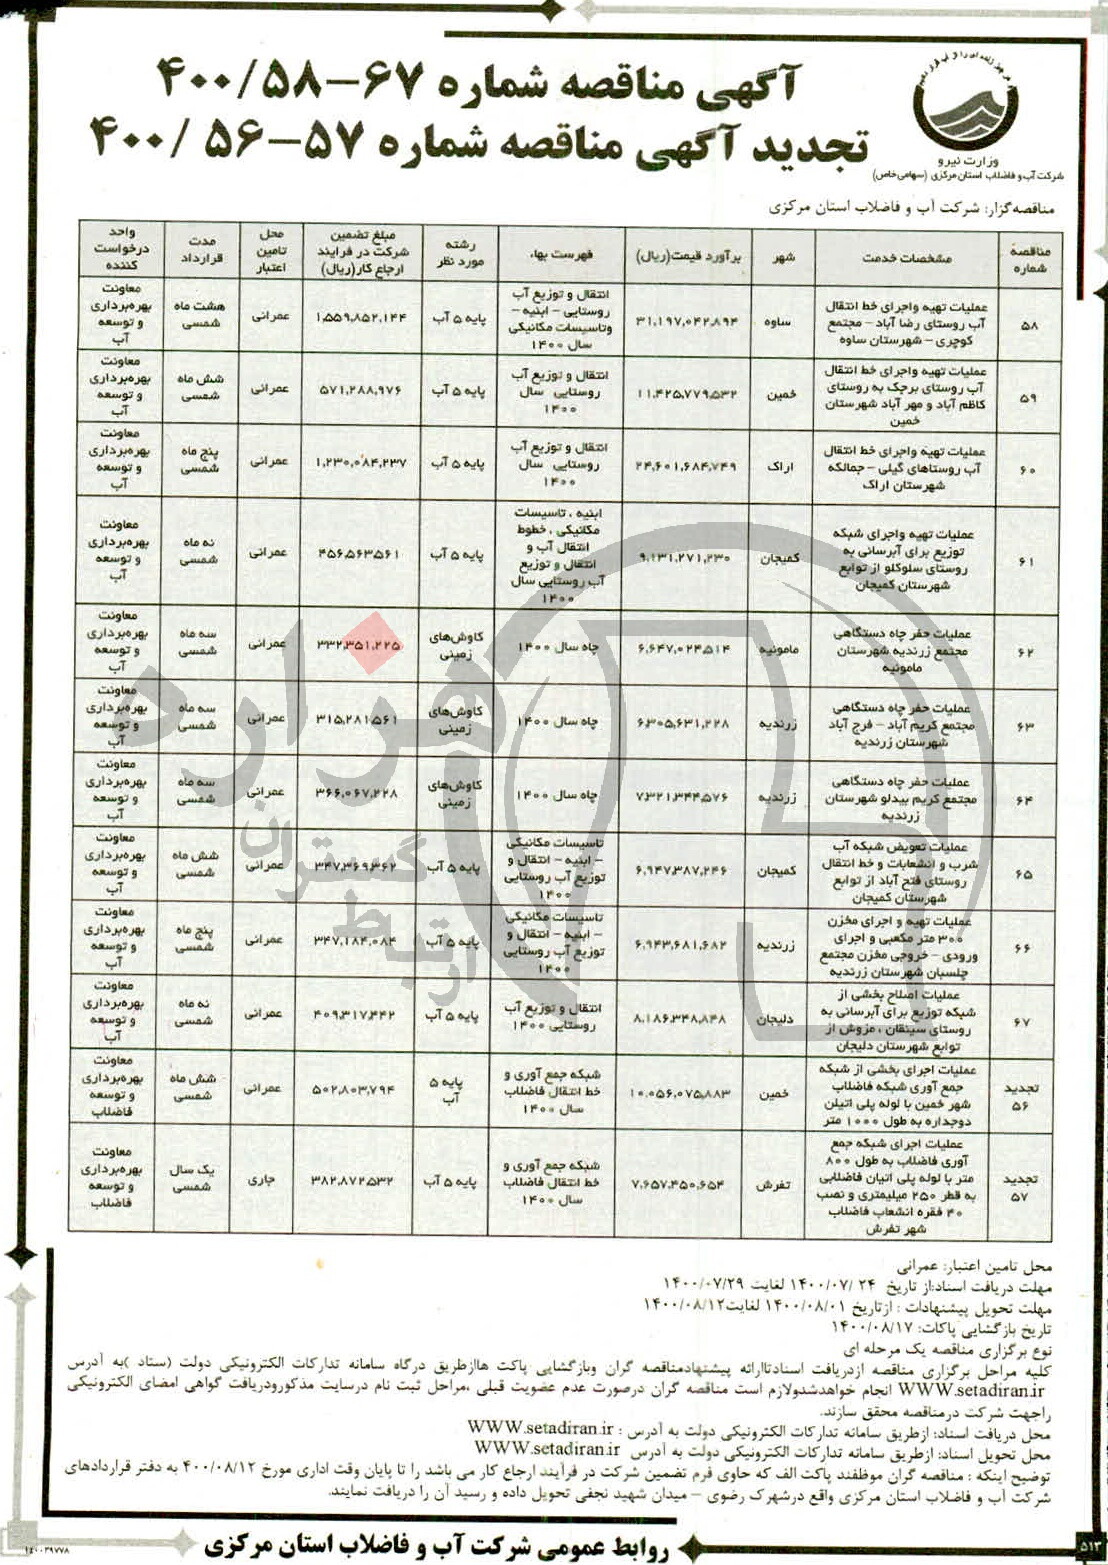 آگهی مناقصه شماره ۶۷-۴۰۰/۵۸
تجدید آگهی مناقصه شماره ۵۷-۵۶ /۴۰۰
وزارت نیرو
شرکت آب و فاضلاب استان مرکزی (سهامی خاص)
مناقصه‌گزار: شرکت آب و فاضلاب استان مرکزی
مناقصه شماره | مشخصات خدمت | شهر | برآورد قیمت(ریال) | فهرست بهاء | رشته مورد نظر | مبلغ تضمین شرکت در فرایند ارجاع کار(ریال) | محل تامین اعتبار | مدت قرارداد | واحد درخواست کننده
۵۸ | عملیات تهیه واجرای خط انتقال آب روستای رضا آباد - مجتمع کوچری - شهرستان ساوه | ساوه | ۳۱,۱۹۷,۰۴۲,۸۹۴ | انتقال و توزیع آب روستایی - ابنیه - وتاسیسات مکانیکی سال ۱۴۰۰ | پایه ۵ آب | ۱,۵۵۹,۸۵۲,۱۴۴ | عمرانی | هشت ماه شمسی | معاونت بهره‌برداری و توسعه آب
۵۹ | عملیات تهیه واجرای خط انتقال آب روستای برجک به روستای کاظم آباد و مهر آباد شهرستان خمین | خمین | ۱۱,۴۲۵,۷۷۹,۵۳۲ | انتقال و توزیع آب روستایی سال ۱۴۰۰ | پایه ۵ آب | ۵۷۱,۲۸۸,۹۷۶ | عمرانی | شش ماه شمسی | معاونت بهره‌برداری و توسعه آب
۶۰ | عملیات تهیه واجرای خط انتقال آب روستاهای گیلی - جمالکه شهرستان اراک | اراک | ۲۴,۶۰۱,۶۸۴,۷۴۹ | انتقال و توزیع آب روستایی سال ۱۴۰۰ | پایه ۵ آب | ۱,۲۳۰,۰۸۴,۲۳۷ | عمرانی | پنج ماه شمسی | معاونت بهره‌برداری و توسعه آب
۶۱ | عملیات تهیه واجرای شبکه توزیع برای آبرسانی به روستای سلوکلو از توابع شهرستان کمیجان | کمیجان | ۹,۱۳۱,۲۷۱,۲۳۰ | ابنیه ، تاسیسات مکانیکی ، خطوط انتقال آب و انتقال و توزیع آب روستایی سال ۱۴۰۰ | پایه ۵ آب | ۴۵۶,۵۶۳,۵۶۱ | عمرانی | نه ماه شمسی | معاونت بهره‌برداری و توسعه آب
۶۲ | عملیات حفر چاه دستگاهی مجتمع زرندیه شهرستان مامونیه | مامونیه | ۶,۶۴۷,۰۲۴,۵۱۴ | چاه سال ۱۴۰۰ | کاوش‌های زمینی | ۳۳۲,۳۵۱,۲۲۵ | عمرانی | سه ماه شمسی | معاونت بهره‌برداری و توسعه آب
۶۳ | عملیات حفر چاه دستگاهی مجتمع کریم آباد - فرج آباد شهرستان زرندیه | زرندیه | ۶,۳۰۵,۶۳۱,۲۲۸ | چاه سال ۱۴۰۰ | کاوش‌های زمینی | ۳۱۵,۲۸۱,۵۶۱ | عمرانی | سه ماه شمسی | معاونت بهره‌برداری و توسعه آب
۶۴ | عملیات حفر چاه دستگاهی مجتمع کریم بیدلو شهرستان زرندیه | زرندیه | ۷,۳۲۱,۳۴۴,۵۷۶ | چاه سال ۱۴۰۰ | کاوش‌های زمینی | ۳۶۶,۰۶۷,۲۲۸ | عمرانی | سه ماه شمسی | معاونت بهره‌برداری و توسعه آب
۶۵ | عملیات تعویض شبکه آب شرب و انشعابات و خط انتقال روستای فتح آباد از توابع شهرستان کمیجان | کمیجان | ۶,۹۴۷,۳۸۷,۲۴۶ | تاسیسات مکانیکی - ابنیه - انتقال و توزیع آب روستایی ۱۴۰۰ | پایه ۵ آب | ۳۴۷,۳۶۹,۳۶۲ | عمرانی | شش ماه شمسی | معاونت بهره‌برداری و توسعه آب
۶۶ | عملیات تهیه و اجرای مخزن ۳۰۰ متر مکعبی و اجرای ورودی - خروجی مخزن مجتمع چلسبان شهرستان زرندیه | زرندیه | ۶,۹۴۳,۶۸۱,۶۸۲ | تاسیسات مکانیکی - ابنیه - انتقال و توزیع آب روستایی ۱۴۰۰ | پایه ۵ آب | ۳۴۷,۱۸۴,۰۸۴ | عمرانی | پنج ماه شمسی | معاونت بهره‌برداری و توسعه آب
۶۷ | عملیات اصلاح بخشی از شبکه توزیع برای آبرسانی به روستای سینقان ، مزوش از توابع شهرستان دلیجان | دلیجان | ۸,۱۸۶,۳۴۸,۸۴۸ | انتقال و توزیع آب روستایی ۱۴۰۰ | پایه ۵ آب | ۴۰۹,۳۱۷,۴۴۲ | عمرانی | نه ماه شمسی | معاونت بهره‌برداری و توسعه آب
تجدید ۵۶ | عملیات اجرای بخشی از شبکه جمع آوری شبکه فاضلاب شهر خمین با لوله پلی اتیلن دوجداره به طول ۱۰۰۰ متر | خمین | ۱۰,۰۵۶,۰۷۵,۸۸۳ | شبکه جمع آوری و خط انتقال فاضلاب سال ۱۴۰۰ | پایه ۵ آب | ۵۰۲,۸۰۳,۷۹۴ | عمرانی | شش ماه شمسی | معاونت بهره‌برداری و توسعه فاضلاب
تجدید ۵۷ | عملیات اجرای شبکه جمع آوری فاضلاب به طول ۸۰۰ متر با لوله پلی اتیان فاضلابی به قطر ۲۵۰ میلیمتری و نصب ۴۰ فقره انشعاب فاضلاب شهر تفرش | تفرش | ۷,۶۵۷,۴۵۰,۶۵۴ | شبکه جمع آوری و خط انتقال فاضلاب سال ۱۴۰۰ | پایه ۵ آب | ۳۸۲,۸۷۲,۵۳۲ | جاری | یک سال شمسی | معاونت بهره‌برداری و توسعه فاضلاب
محل تامین اعتبار: عمرانی
مهلت دریافت اسناد:از تاریخ ۲۴ /۱۴۰۰/۰۷ لغایت ۱۴۰۰/۰۷/۲۹
مهلت تحویل پیشنهادات : ازتاریخ ۱۴۰۰/۰۸/۰۱ لغایت۱۴۰۰/۰۸/۱۲
تاریخ بازگشایی پاکات: ۱۴۰۰/۰۸/۱۷
نوع برگزاری مناقصه یک مرحله ای
کلیه مراحل برگزاری مناقصه ازدریافت اسنادتاارائه پیشنهادمناقصه گران وبازگشایی پاکت هاازطریق درگاه سامانه تدارکات الکترونیکی دولت (ستاد )به آدرس
WWW.setadiran.ir انجام خواهدشدولازم است مناقصه گران درصورت عدم عضویت قبلی ،مراحل ثبت نام درسایت مذکورودریافت گواهی امضای الکترونیکی
راجهت شرکت درمناقصه محقق سازند.
محل دریافت اسناد: ازطریق سامانه تدارکات الکترونیکی دولت به آدرس : WWW.setadiran.ir
محل تحویل اسناد: ازطریق سامانه تدارکات الکترونیکی دولت به آدرس WWW.setadiran.ir
توضیح اینکه : مناقصه گران موظفند پاکت الف که حاوی فرم تضمین شرکت در فرآیند ارجاع کار می باشد را تا پایان وقت اداری مورخ ۴۰۰/۰۸/۱۲ به دفتر قراردادهای
شرکت آب و فاضلاب استان مرکزی واقع درشهرک رضوی – میدان شهید نجفی تحویل داده و رسید آن را دریافت نمایند.
روابط عمومی شرکت آب و فاضلاب استان مرکزی
۵۱۳
۱۴۰۰۳۹۷۷۸
هزاره
ارتباط گستران